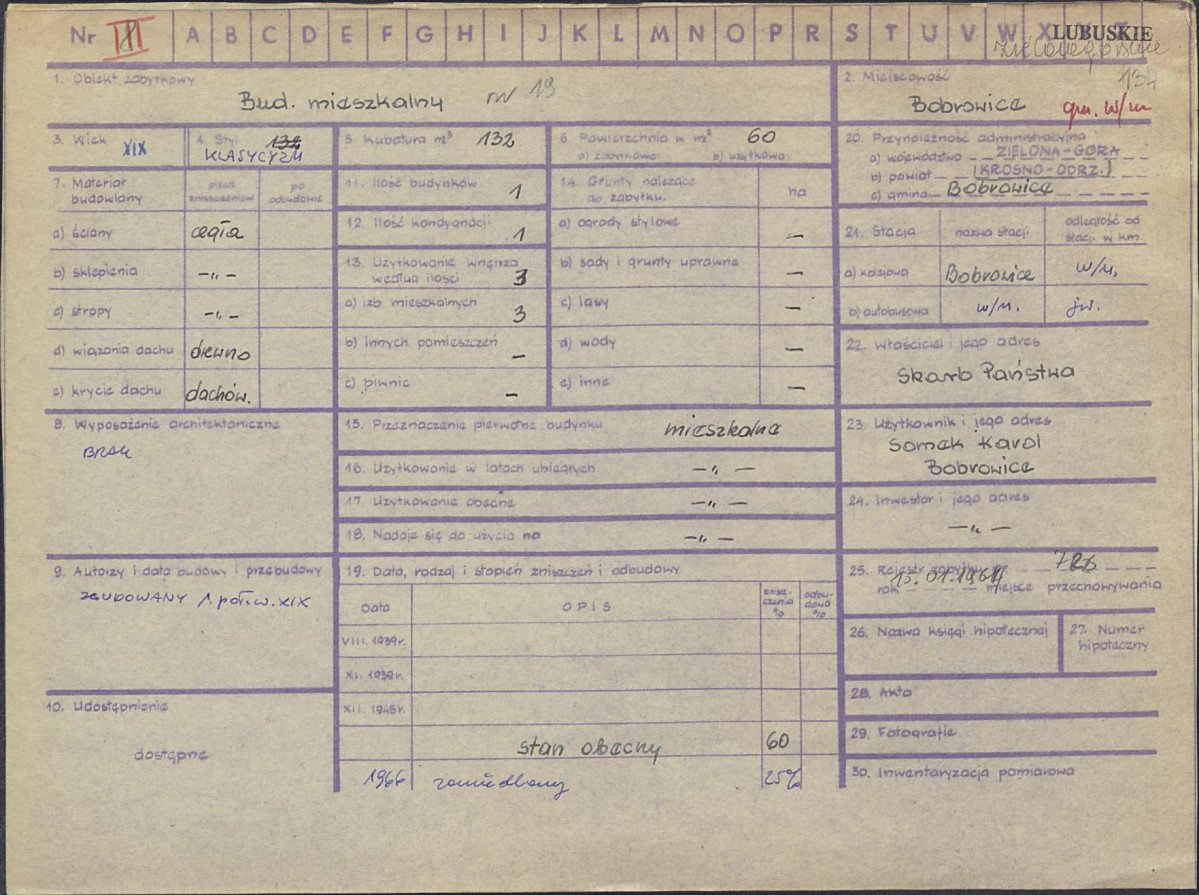 Nr III A B C D E F G H I J K L M N O P R S T U V W X Y Z
LUBUSKIE
zielonogórskie
134
1. Obiekt zabytkowy
Bud. mieszkalny nr 19
2. Miejscowość
Bobrowice gm. w/m
3. Wiek XIX
4. Styl 132
KLASYCYZM
5. Kubatura m³ 132
6. Powierzchnia w m² 60
a) zabytkowa: b) użytkowa:
20. Przynależność administracyjna
a) województwo ZIELONA-GÓRA
b) powiat (KROSNO-ODRZ.)
c) gmina Bobrowice
7. Materiał budowlany
przed zniszczeniem
po odbudowie
a) ściany cegła
b) sklepienia -„-
c) stropy -„-
d) wiązania dachu drewno
e) krycie dachu dachów.
11. Ilość budynków 1
12. Ilość kondygnacji 1
13. Użytkowanie wnętrza
według ilości 3
a) izb mieszkalnych 3
b) innych pomieszczeń -
c) piwnic -
14. Grunty należące
do zabytku: ha
a) ogrody stylowe -
b) sady i grunty uprawne -
c) lasy -
d) wody -
e) inne -
21. Stacja nazwa stacji odległość od
stacji w km.
a) kolejowa Bobrowice w/m.
b) autobusowa w/m. jw.
22. Właściciel i jego adres
Skarb Państwa
8. Wyposażenie architektoniczne
BRAK
15. Przeznaczenie pierwotne budynku mieszkalne
16. Użytkowanie w latach ubiegłych -„-
17. Użytkowanie obecne -„-
18. Nadaje się do użycia na -„-
23. Użytkownik i jego adres
Somek Karol
Bobrowice
24. Inwestor i jego adres
-„-
9. Autorzy i data budowy i przebudowy
ZBUDOWANY 1 poł. w. XIX
10. Udostępnienie
dostępne
19. Data, rodzaj i stopień zniszczeń i odbudowy
Data OPIS znisz-
czenia
% odbu-
dowa
%
VIII. 1939r.
XI. 1939r.
XII. 1945r.
stan obecny 60
1966 zaniedbany 25%
25. Rejestr zabytków nr
rok 15.01.1964 miejsce przechowywania
26. Nazwa księgi hipotecznej
27. Numer
hipoteczny
28. Akta
29. Fotografie
30. Inwentaryzacja pomiarowa